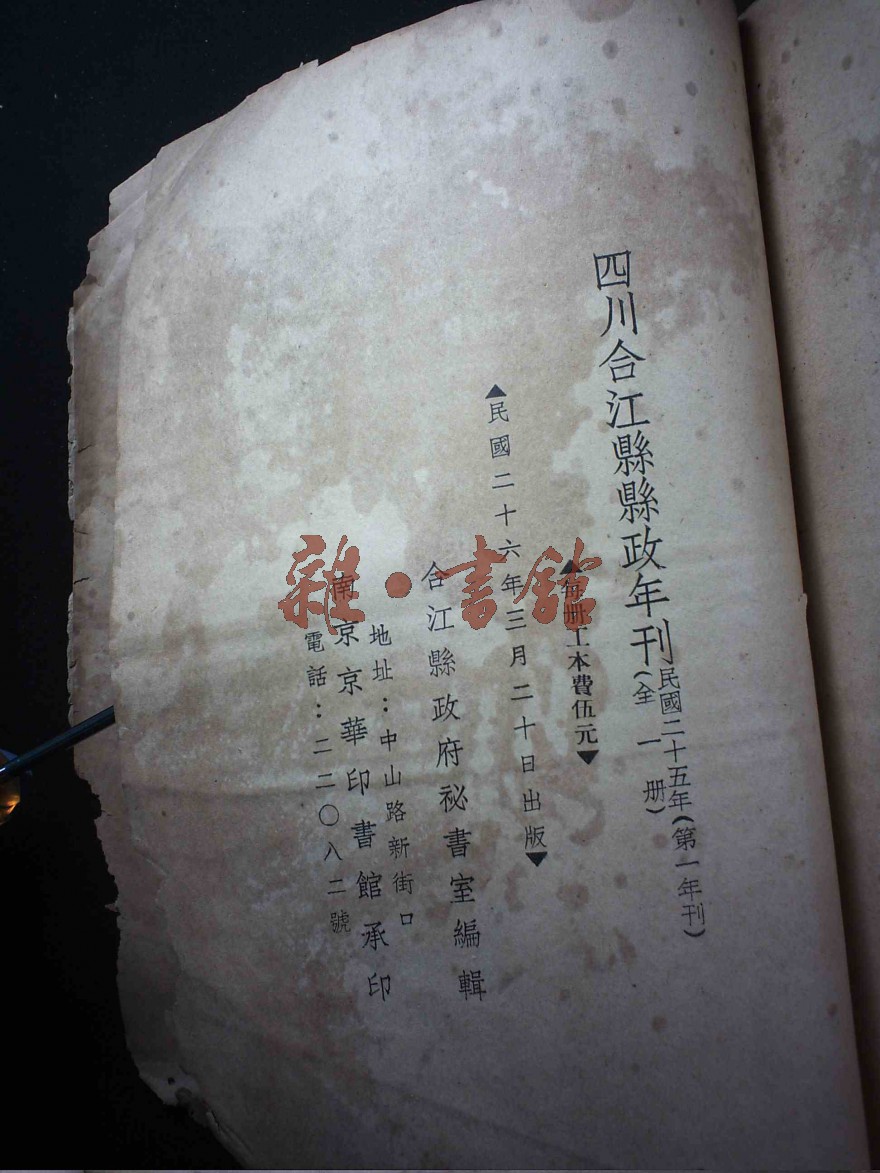 四川合江縣縣政年刊
民國二十五年(第一年刊)
(全一册)
▲每册工本費伍元▼
▲民國二十六年三月二十日出版▼
合江縣政府祕書室編輯
地址：中山路新街口
南京京華印書館承印
電話：二二〇八二號
雜·書館